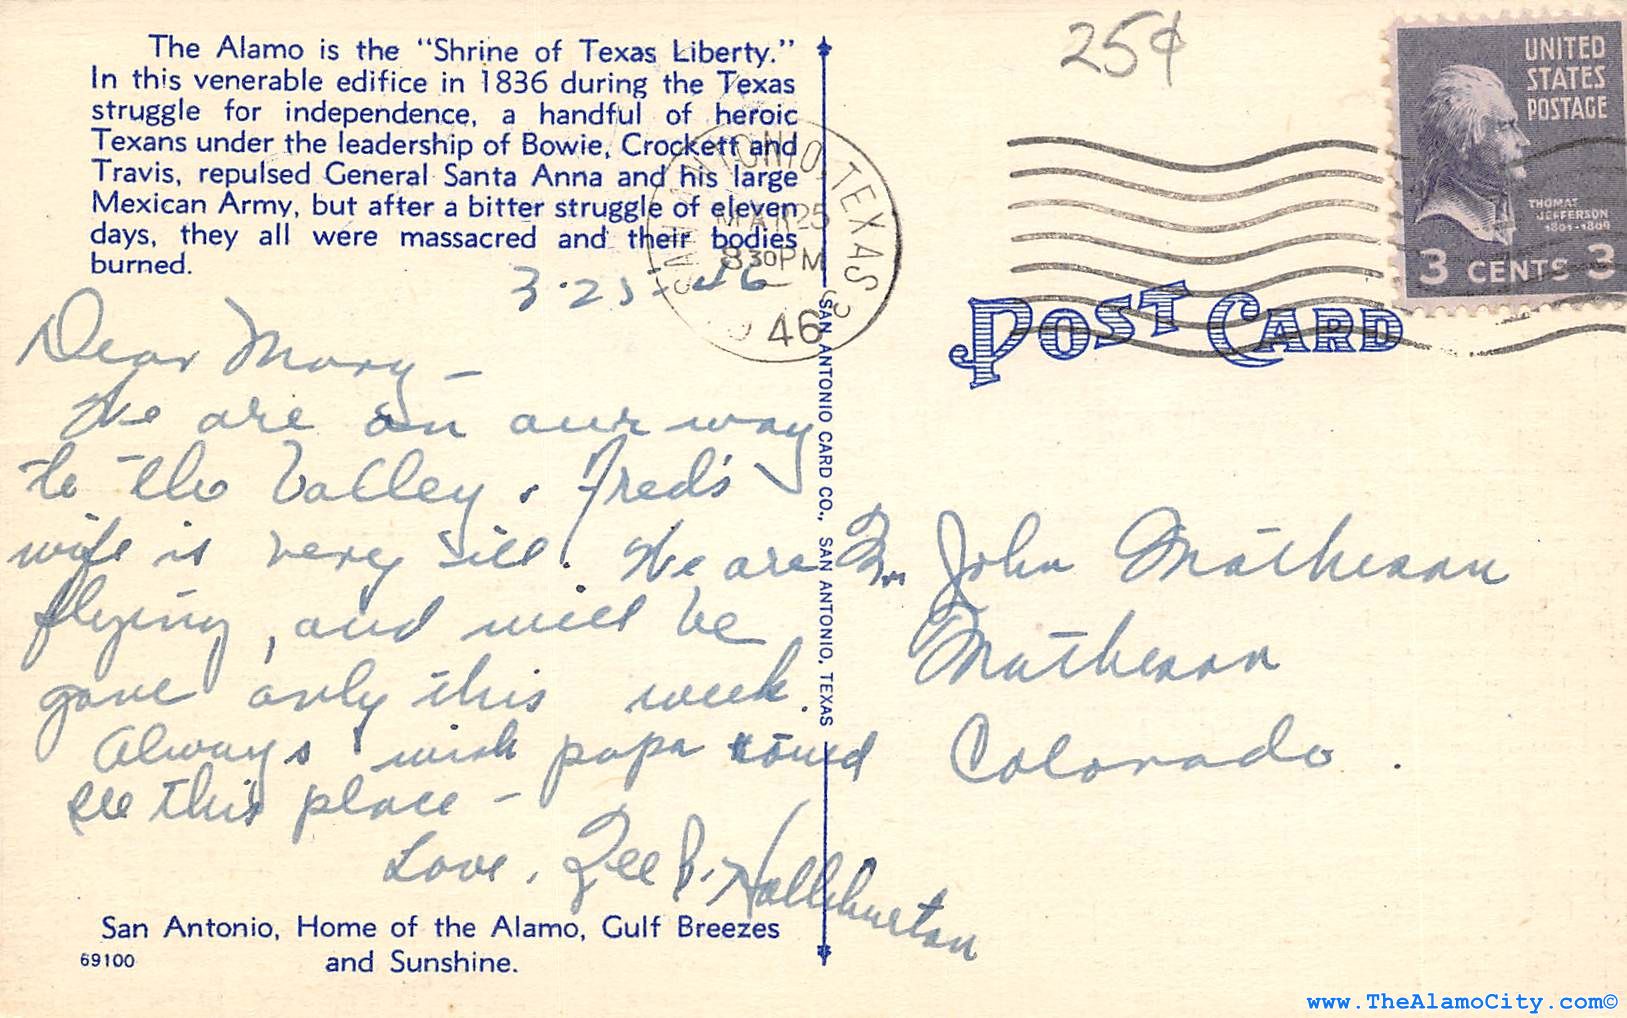 The Alamo is the "Shrine of Texas Liberty."
In this venerable edifice in 1836 during the Texas
struggle for independence, a handful of heroic
Texans under the leadership of Bowie, Crockett and
Travis, repulsed General Santa Anna and his large
Mexican Army, but after a bitter struggle of eleven
days, they all were massacred and their bodies
burned.
3-25-46
Dear Mary -
We are on our way
to the Valley. Fred's
wife is very ill. We are
flying, and will be
gone only this week.
Always wish papa could
see this place -
Love, Zee B. Halliburton
San Antonio, Home of the Alamo, Gulf Breezes
and Sunshine.
69100
SAN ANTONIO CARD CO., SAN ANTONIO, TEXAS
SAN ANTONIO, TEXAS
MAR 25
8 30 PM
46
25¢
UNITED
STATES
POSTAGE
THOMAS
JEFFERSON
1801-1809
3 CENTS 3
POST CARD
John Matheson
Matheson
Colorado.
www.TheAlamoCity.com©